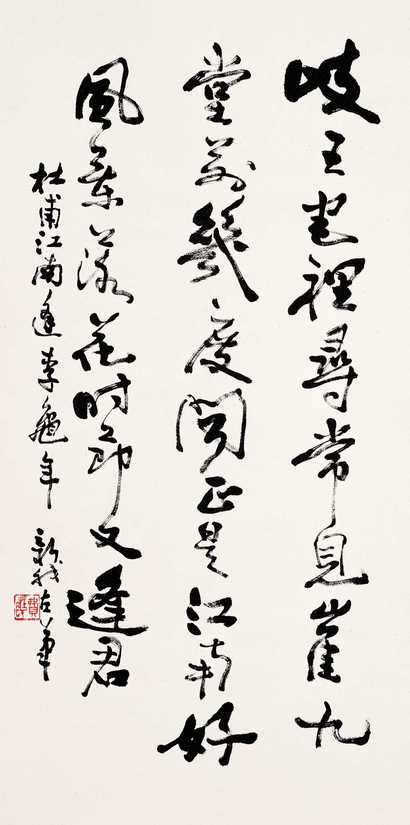 岐王宅裡尋常見崔九
堂前幾度聞正是江南好
風景落花時節又逢君
杜甫江南逢李龜年
新我左筆